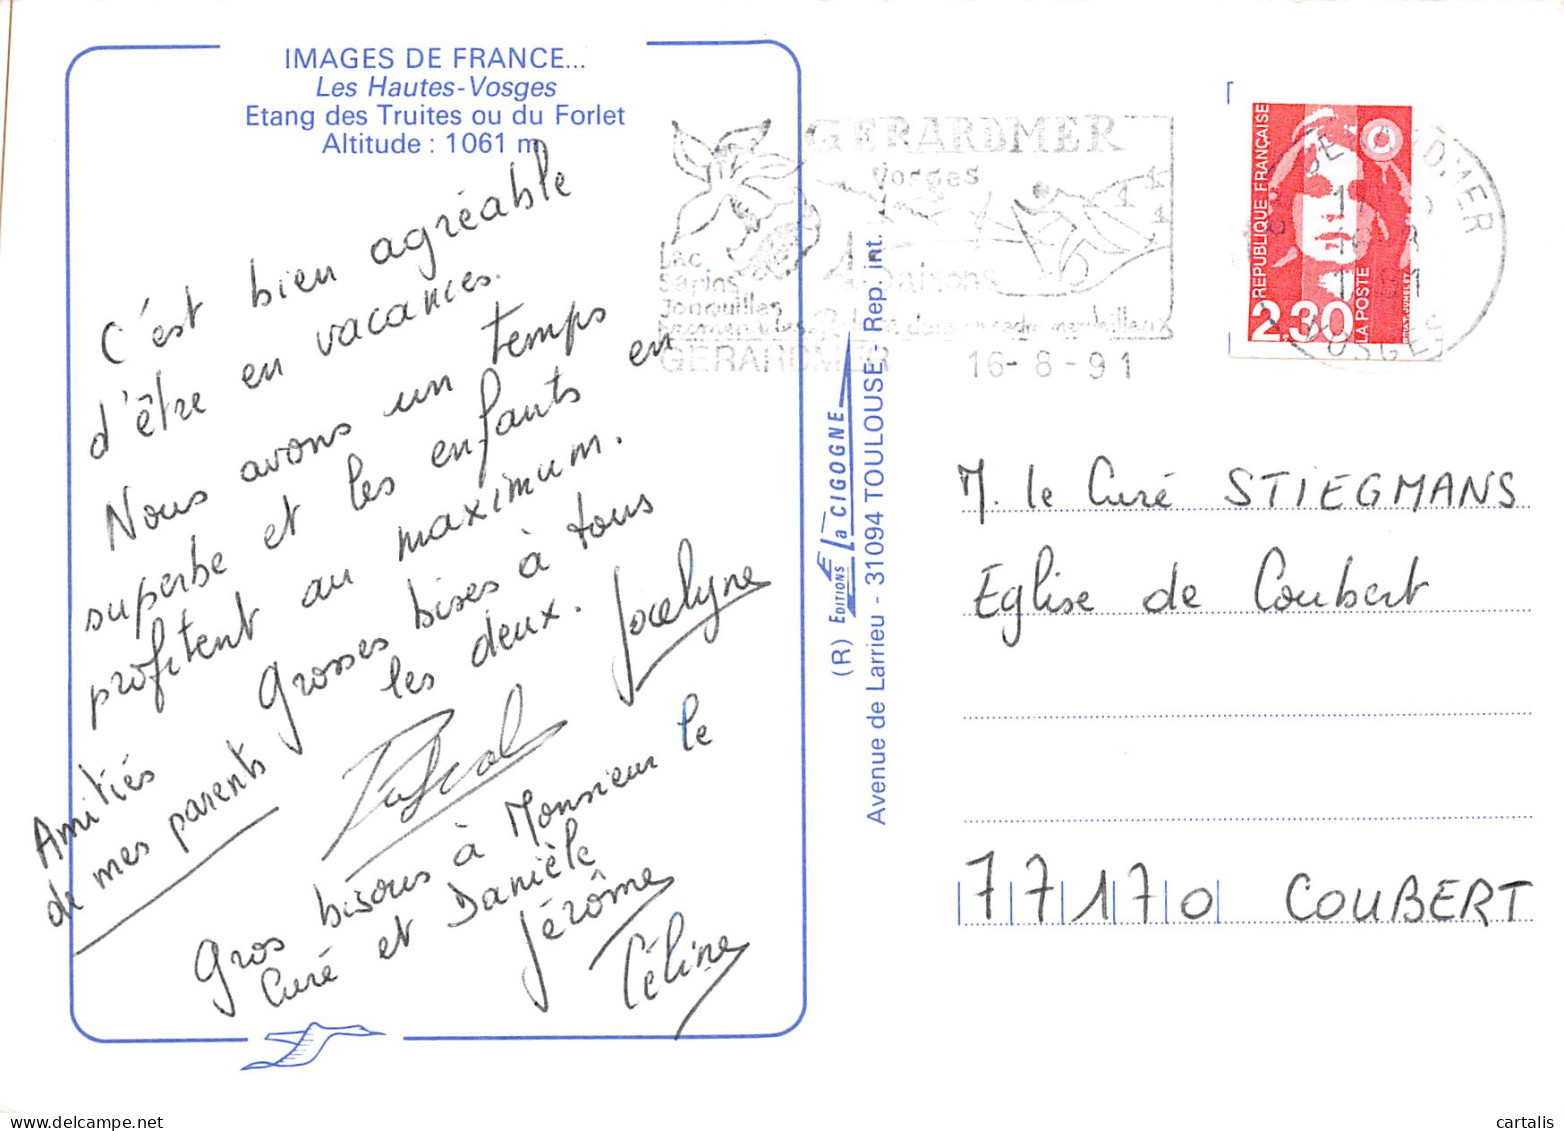 IMAGES DE FRANCE...
Les Hautes-Vosges
Etang des Truites ou du Forlet
Altitude : 1061 m
C'est bien agréable
d'être en vacances.
Nous avons un temps
superbe et les enfants en
profitent au maximum.
Grosses bises à tous
les deux. Jocelyne
Pascal
Amitiés
de mes parents
Gros bisous à Monsieur le
Curé et Danièle
Jérôme
Céline
GERARDMER
Vosges
Lac
Sapins
Jonquilles
4 saisons
GERARDMER 16-8-91
REPUBLIQUE FRANÇAISE
2,30
LA POSTE
VOSGES
(R) EDITIONS La CIGOGNE
Avenue de Larrieu - 31094 TOULOUSE - Rep. int.
M. le Curé STIEGMANS
Eglise de Coubert
77170 COUBERT
cartalis